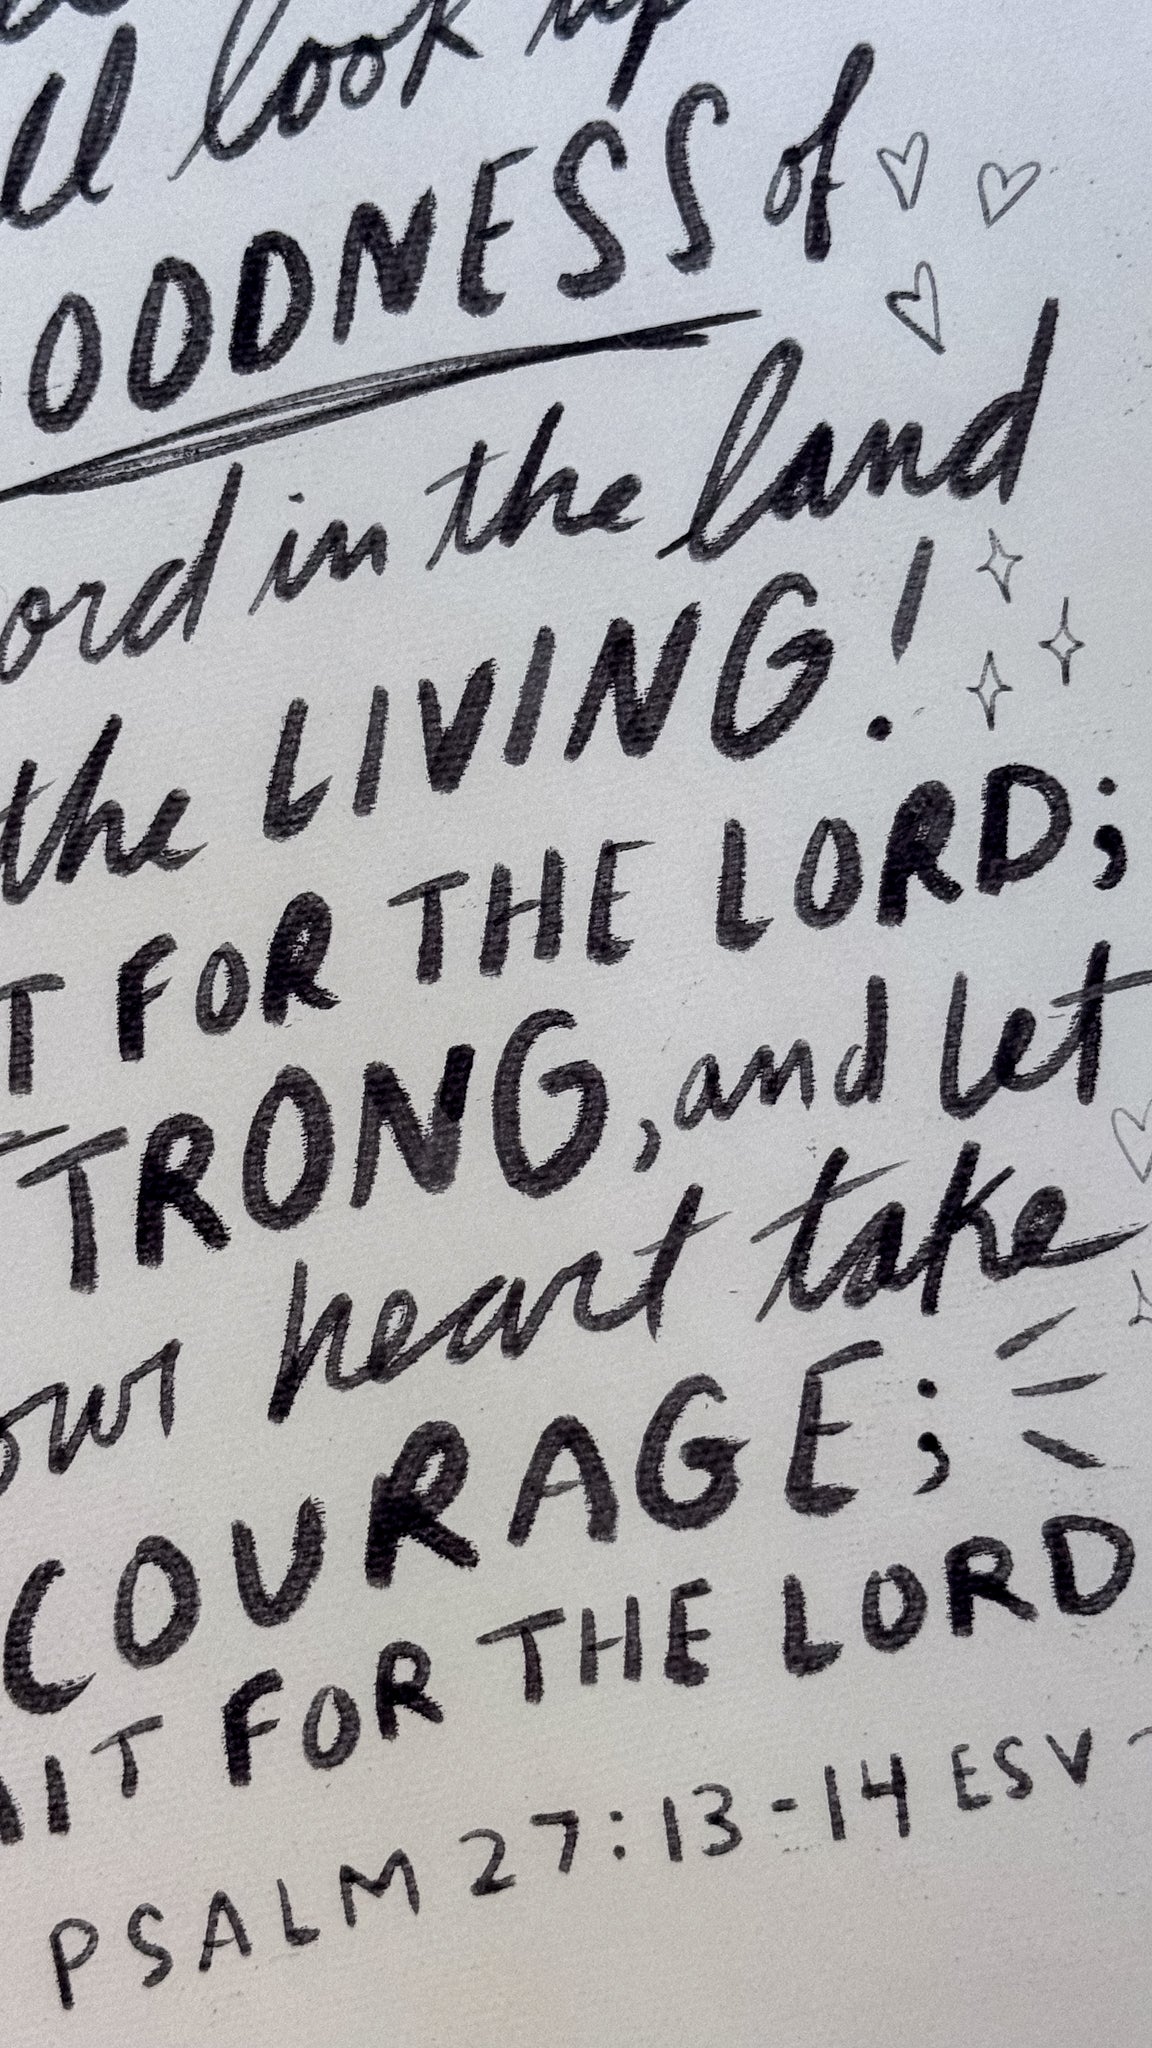 ll look up
OODNESS of
ord in the land
the LIVING!
T FOR THE LORD;
TRONG, and let
our heart take
COURAGE;
AIT FOR THE LORD
PSALM 27:13-14 ESV